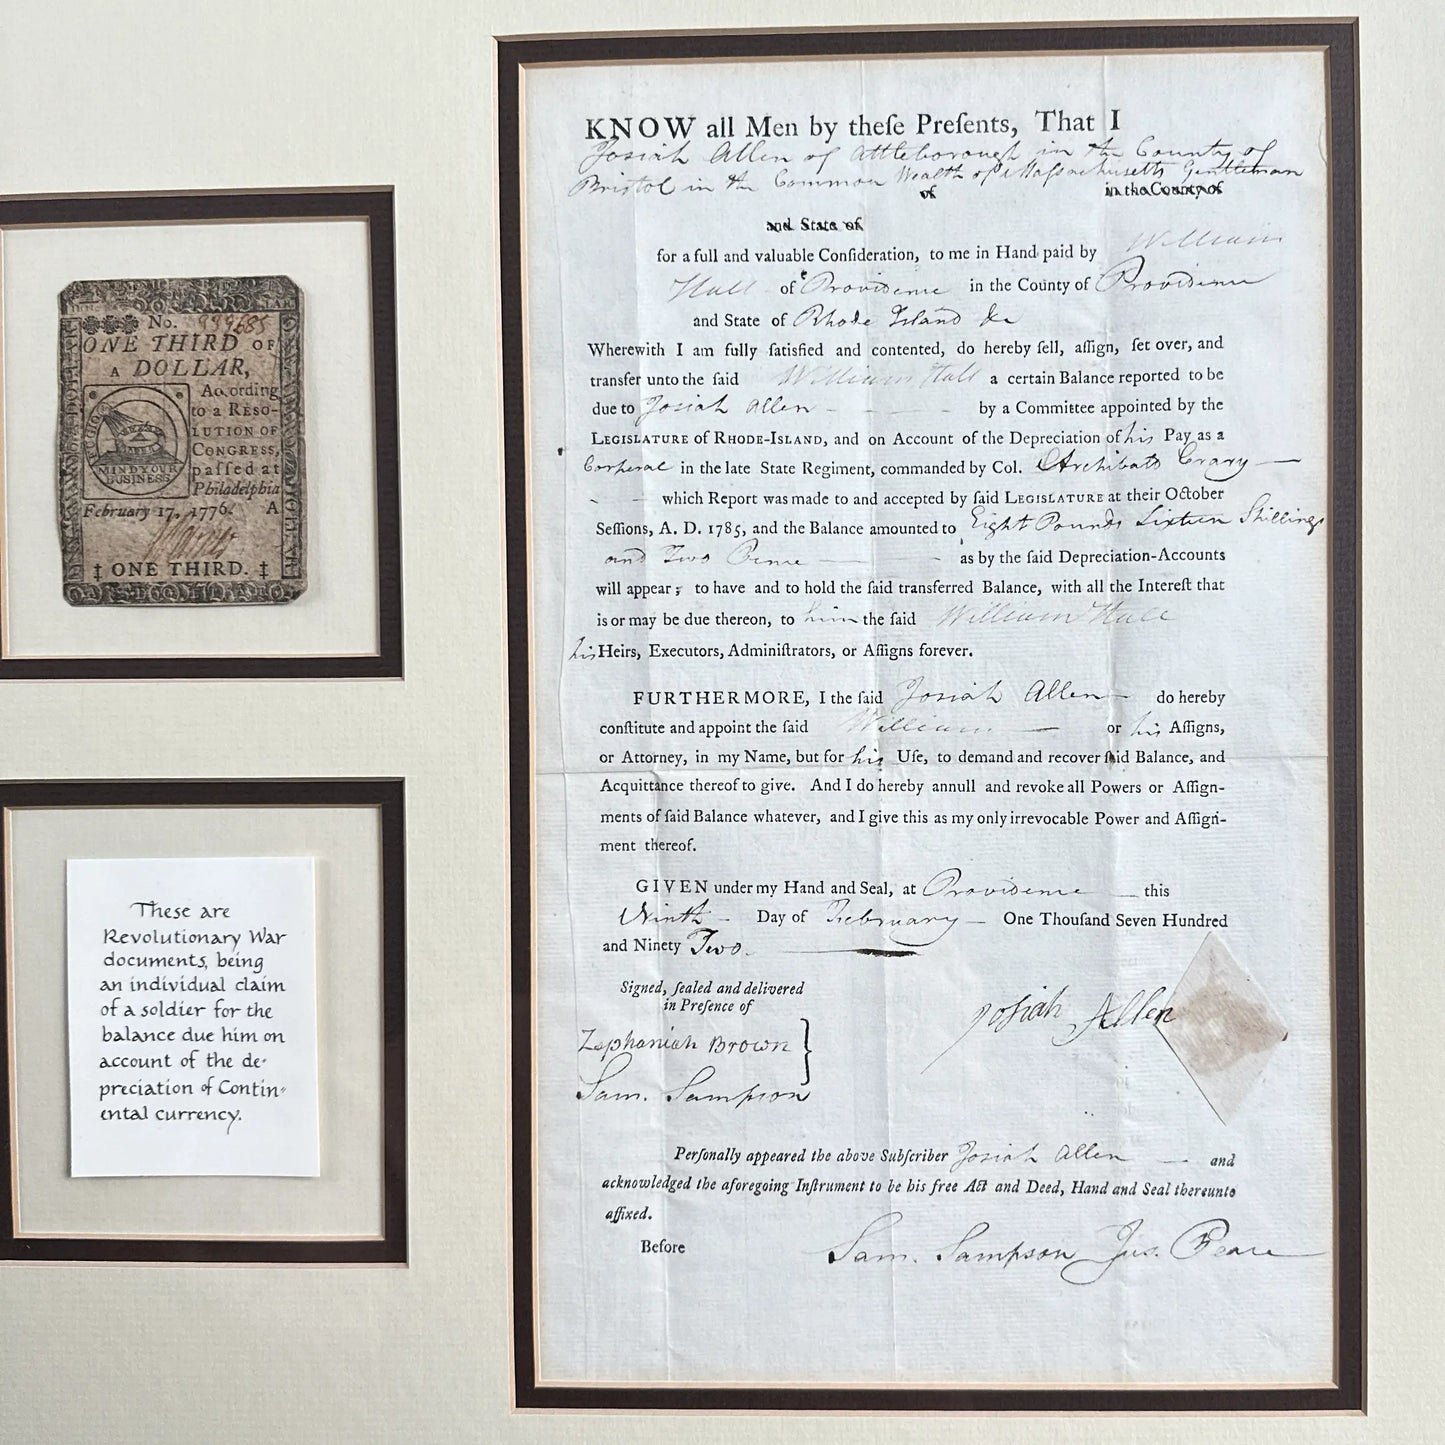 No. 999685
ONE THIRD OF
A DOLLAR,
According
to a RESO-
LUTION OF
CONGRESS,
passed at
Philadelphia
February 17, 1776. A
FUGIO
MIND YOUR
BUSINESS
‡ ONE THIRD. ‡
These are
Revolutionary War
documents, being
an individual claim
of a soldier for the
balance due him on
account of the de-
preciation of Contin-
ental currency.
KNOW all Men by theſe Preſents, That I
Josiah Allen of Attleborough in the County of
Bristol in the Common Wealth of Maſsachusetts Gentleman
of in the County of
and State of
for a full and valuable Conſideration, to me in Hand paid by William
Hall of Providence in the County of Providence
and State of Rhode Island &c
Wherewith I am fully ſatisfied and contented, do hereby ſell, aſſign, ſet over, and
transfer unto the ſaid William Hall a certain Balance reported to be
due to Josiah Allen - - - - by a Committee appointed by the
LEGISLATURE of RHODE-ISLAND, and on Account of the Depreciation of his Pay as a
Corperal in the late State Regiment, commanded by Col. Archibald Crary —
- — which Report was made to and accepted by ſaid LEGISLATURE at their October
Seſſions, A. D. 1785, and the Balance amounted to Eight Pounds Sixteen Shillings
and Two Pence — - as by the ſaid Depreciation-Accounts
will appear; to have and to hold the ſaid transferred Balance, with all the Intereſt that
is or may be due thereon, to him the ſaid William Hall
his Heirs, Executors, Adminiſtrators, or Aſſigns forever.
FURTHERMORE, I the ſaid Josiah Allen — do hereby
conſtitute and appoint the ſaid William — or his Aſſigns,
or Attorney, in my Name, but for his Uſe, to demand and recover ſaid Balance, and
Acquittance thereof to give. And I do hereby annull and revoke all Powers or Aſſign-
ments of ſaid Balance whatever, and I give this as my only irrevocable Power and Aſſign-
ment thereof.
GIVEN under my Hand and Seal, at Providence — this
Ninth - Day of February — One Thouſand Seven Hundred
and Ninety Two.
Signed, ſealed and delivered
in Preſence of
Josiah Allen
Zephaniah Brown
Sam. Sampson
Perſonally appeared the above Subſcriber Josiah Allen — and
acknowledged the aforegoing Inſtrument to be his free Act and Deed, Hand and Seal thereunto
affixed.
Before Sam. Sampson Jus. Peace